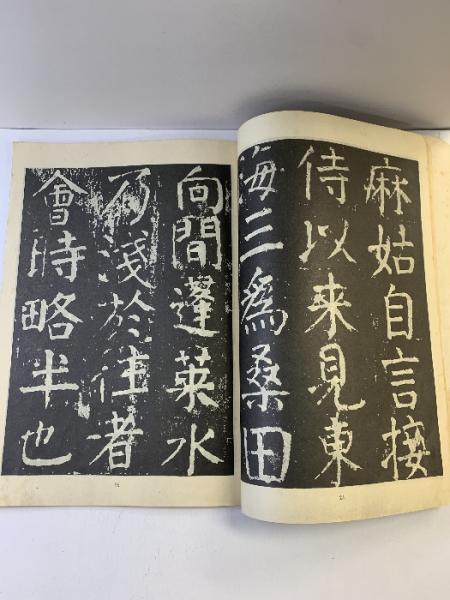 麻姑自言接
侍以来見東
海三爲桑田
向間蓬萊水
乃淺於往者
會時略半也